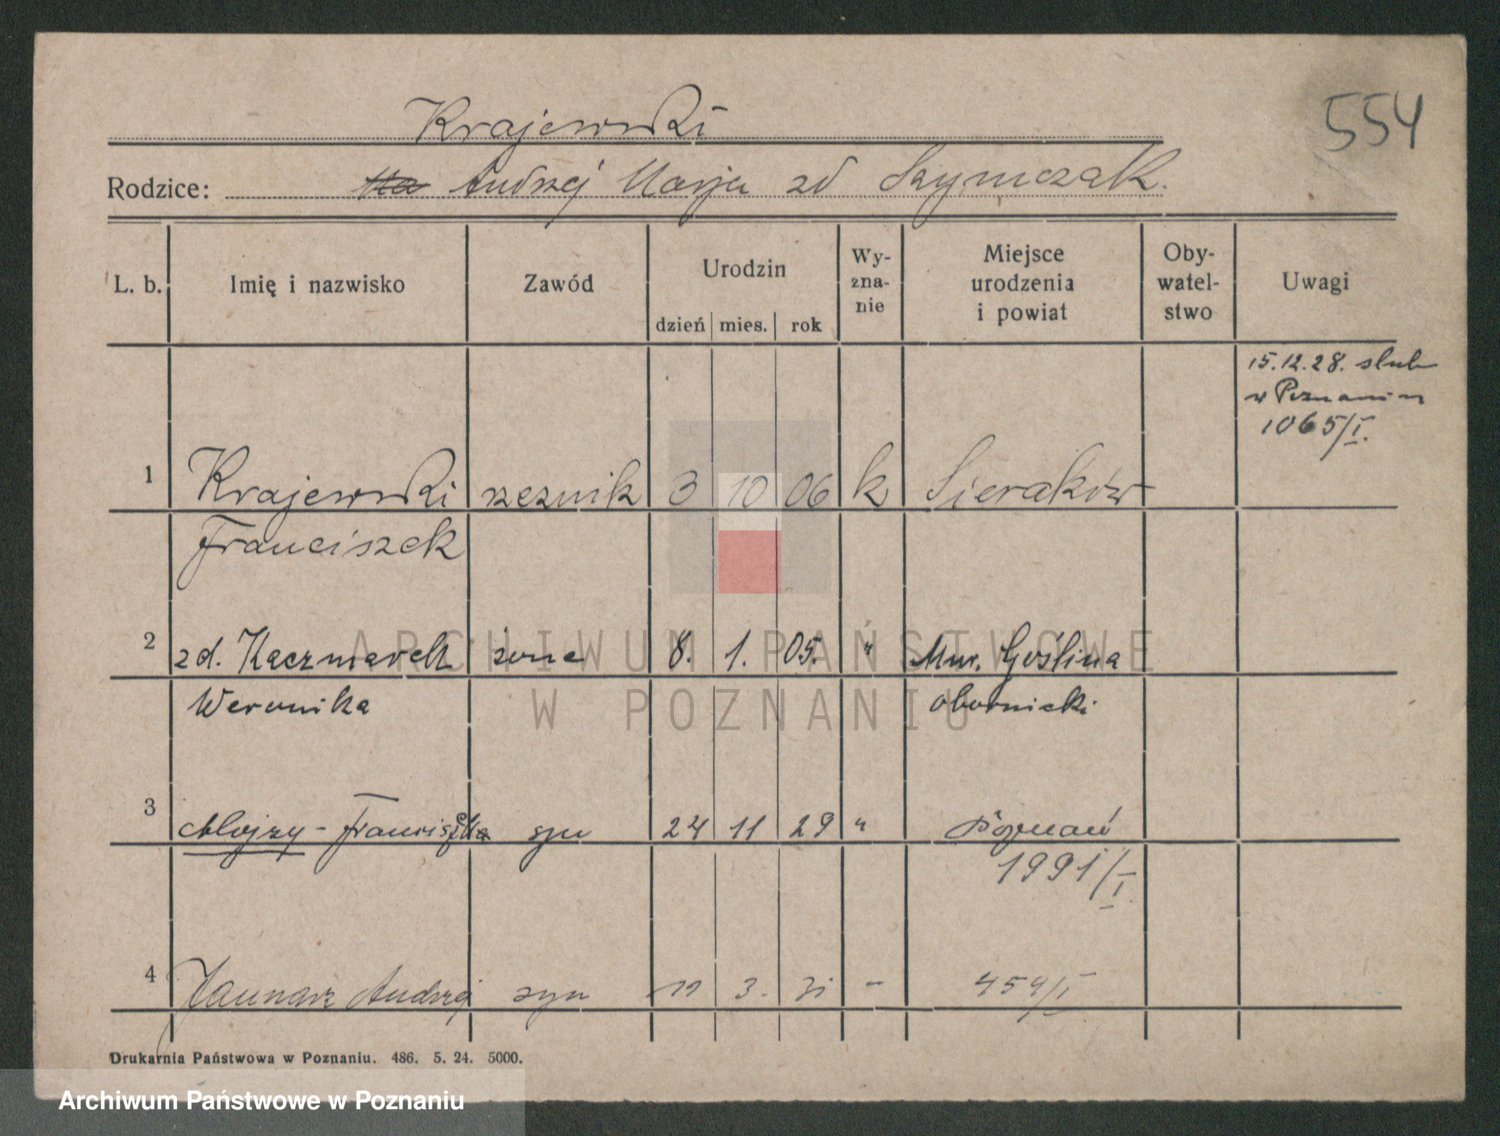 554
Krajewski
Rodzice: Andrzej Marja zd Szymczak.
L. b. Imię i nazwisko Zawód Urodzin dzień mies. rok Wy- zna- nie Miejsce urodzenia i powiat Oby- watel- stwo Uwagi
15.12.28. slub
w Poznaniu
1065/I.
1 Krajewski rzeznik 3 10 06 k Sieraków
Franciszek
2 zd. Kaczmarek żona 8. 1. 05. " Mur. Goślina
Weronika obornicki
3 Alojzy - Franciszek syn 24 11 29 " Poznań
1991/I.
4 Andrzej syn 11 3. 31 - 454/I
Drukarnia Państwowa w Poznaniu. 486. 5. 24. 5000.
ARCHIWUM PAŃSTWOWE
W POZNANIU
Archiwum Państwowe w Poznaniu